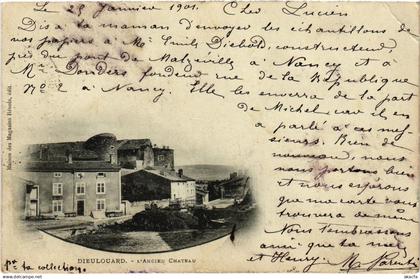 Le 23 Janvier 1901. Cher Lucien
Dis à ta maman d'envoyer les échantillons de
nos papiers à Mr Emile Diebold, constructeur
près du pont de Malzéville à Nancy et à
Mr Donders fondeur rue de la République
No 2 à Nancy. Elle les enverra de la part
de Michel, il en
a parlé à ces mes
sieurs. Rien de
nouveau, nous
nous portons bien
et nous espérons
que ma carte vous
trouvera de même
Nous t'embrassons
ainsi que ta mère
et Henry.
Maison des Magasins Réunis, édit.
DIEULOUARD. - L'ANCIEN CHATEAU
Pr ta collection